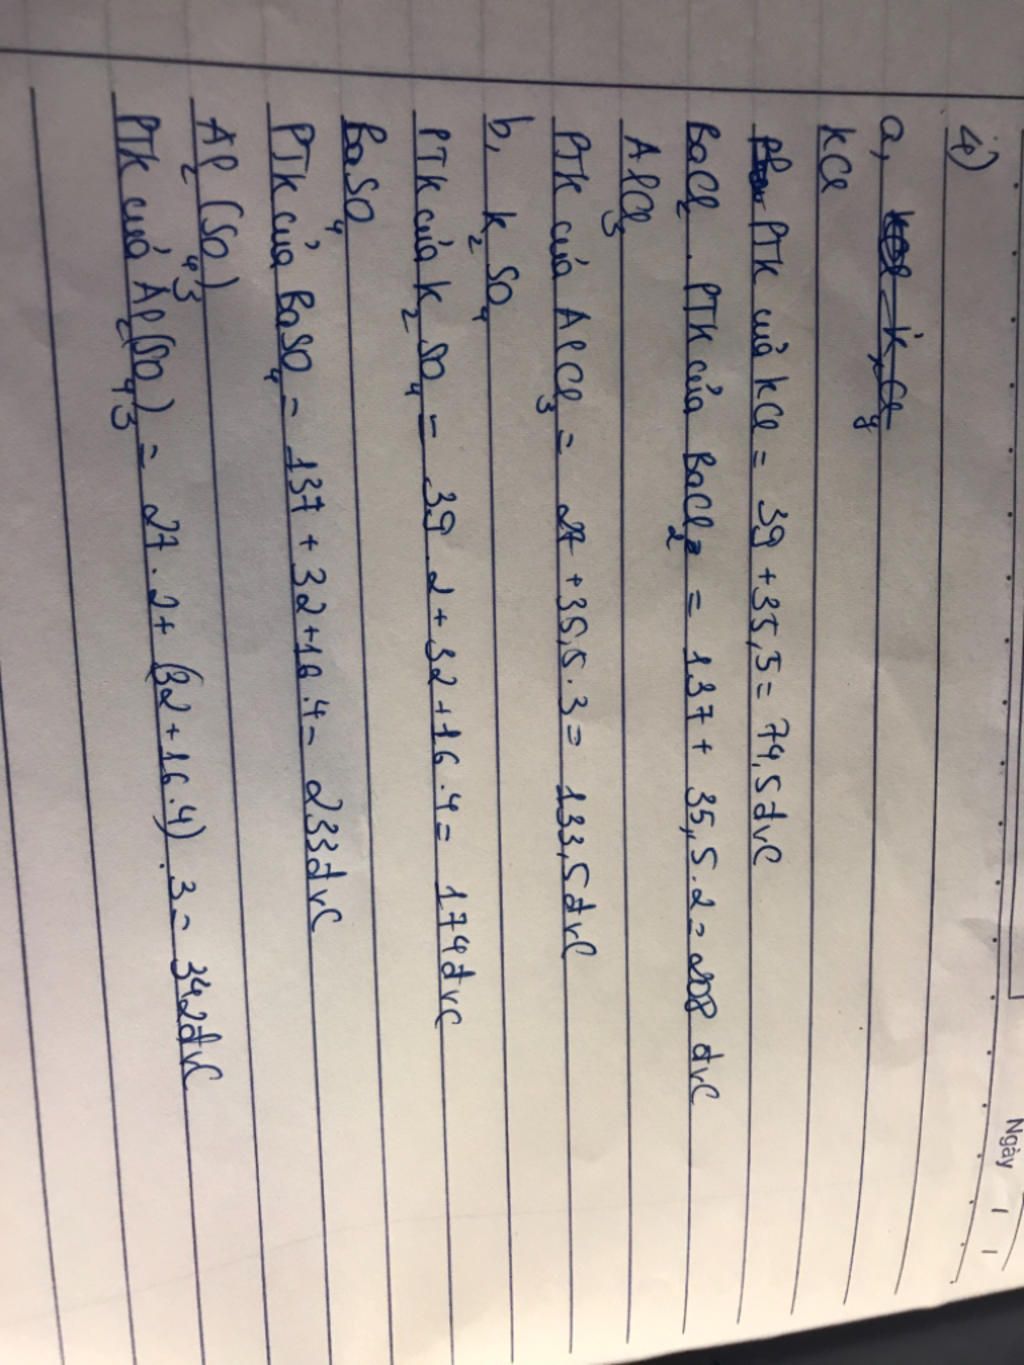 Ngày / /
4)
a,
KCl
PTK của KCl = 39 + 35,5 = 74,5đvC
BaCl₂. PTK của BaCl₂ = 137 + 35,5.2 = 208 đvC
AlCl₃
PTK của AlCl₃ = 27 + 35,5.3 = 133,5đvC
b, K₂SO₄
PTK của K₂SO₄ = 39.2 + 32 + 16.4 = 174đvC
BaSO₄
PTK của BaSO₄ = 137 + 32 + 16.4 = 233đvC
Al₂(SO₄)₃
PTK của Al₂(SO₄)₃ = 27.2 + (32 + 16.4).3 = 342đvC